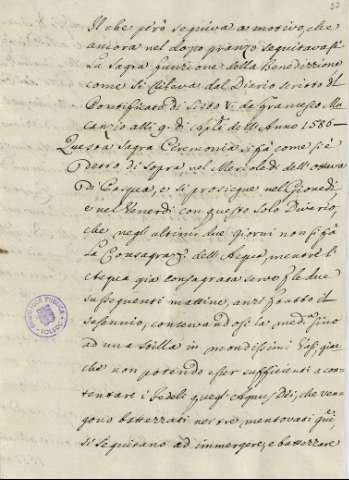 Il che però seguiva a motivo, che
ancora nel dopo pranzo seguitavasi
la Sagra funzione della Benedizzione
come si rileva dal Diario scritto il
Pontificato di Sisto V. da Francesco Mo
canzio alli 9. di April dell'Anno 1586-
Questa Sagra Ceremonia si fà come si è
detto di Sopra nel Mercoledì dell'ottava
di Pasqua, e si prosiegue nel Giovedì
e nel Venerdì con questo solo Divario,
che negli ultimi due giorni non si fà
la Consagraz. dell'Acqua, mentre l'
Acqua già consagrata serve p le due
susseguenti mattine, anzi p tutto il
sessennio, conservandosi la med. sino
ad una stilla in mondissimi Vasi, giac
che non potendo esser sufficienti a con-
tentare i Fedeli quegli Agnus Dei, che ven-
gono battezzati nei trè mentovati
si seguitano ad immergere, e battezzare
BIBLIOTECA PUBLICA
TOLEDO